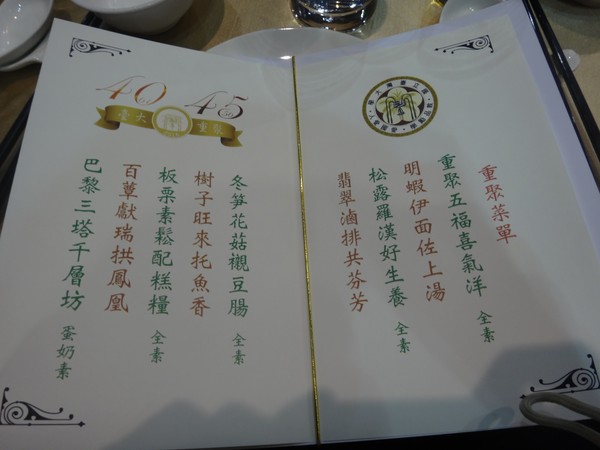 重聚菜單
重聚五福喜氣洋 全素
明蝦伊面佐上湯
松露羅漢好生養 全素
翡翠滷排共芬芳
40 45
臺大 重聚
冬笋花姑襯豆腸 全素
樹子旺來托魚香
板栗素鬆配糕糧 全素
百蕈獻瑞拱鳳凰
巴黎三塔千層坊 蛋奶素